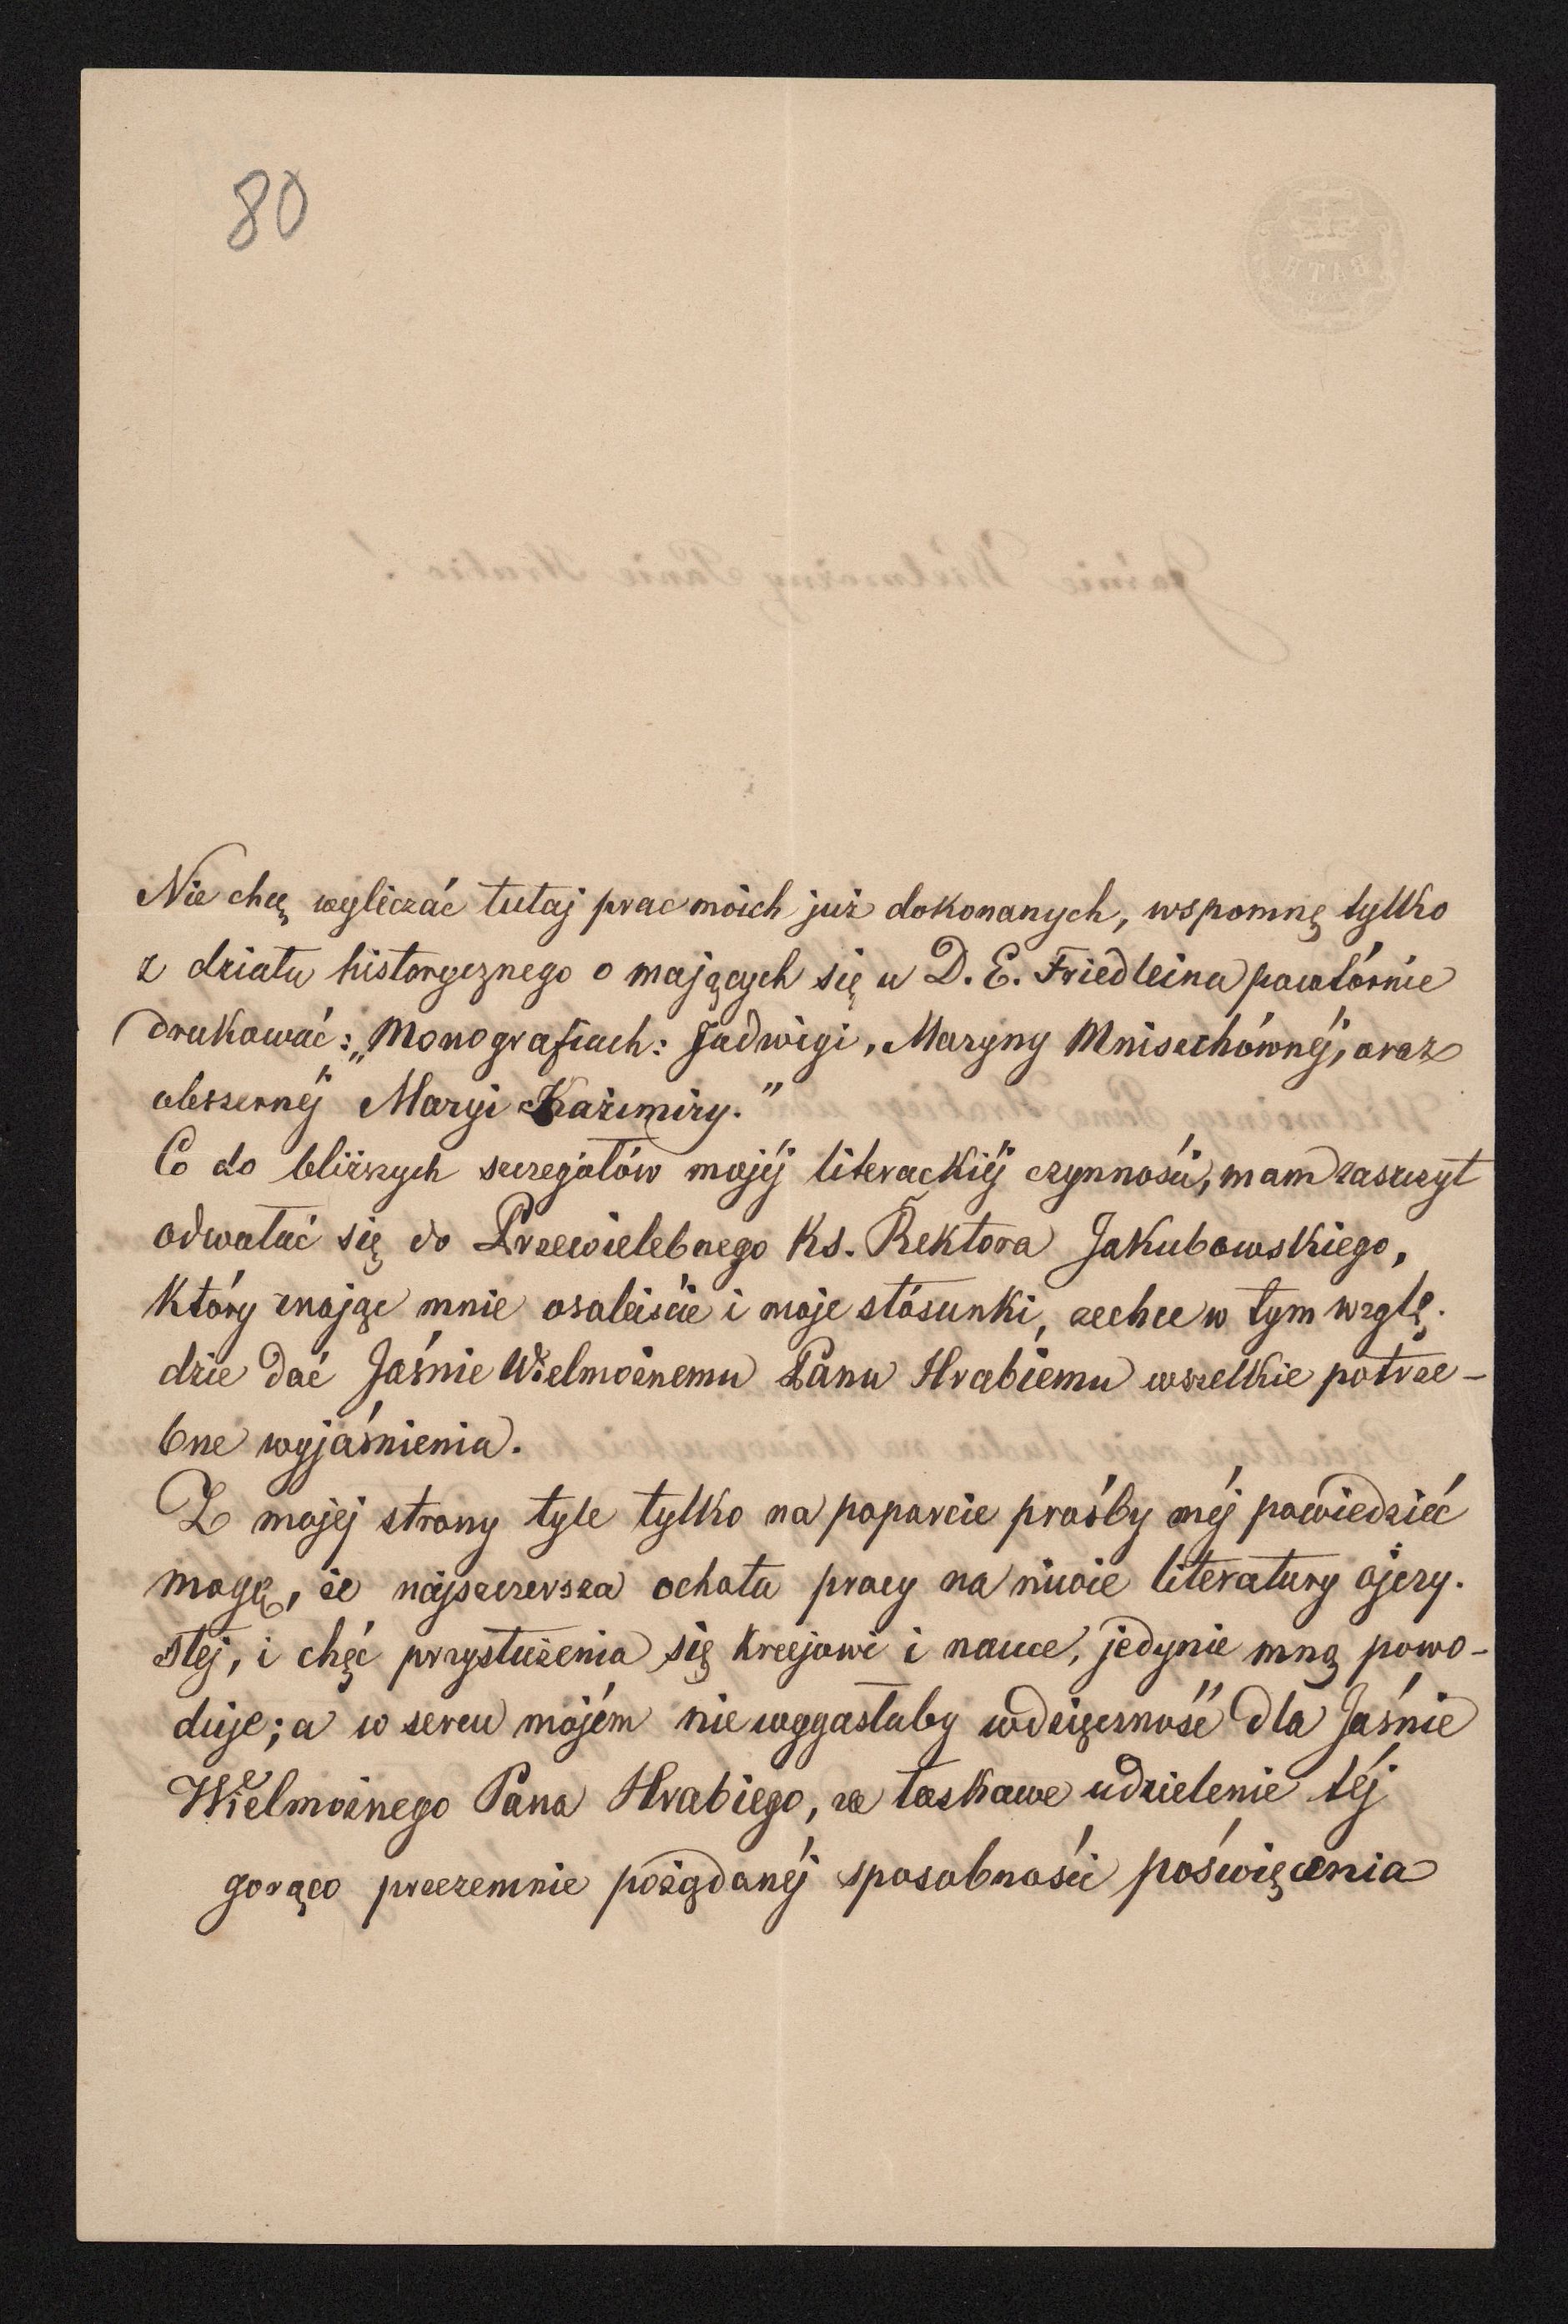 80
Nie chcę wyliczać tutaj prac moich już dokonanych, wspomnę tylko
z działu historycznego o mających się u D. E. Friedleina powtórnie
drukować: „Monografiach: Jadwigi, Maryny Mniszchównéj, oraz
obszernéj Maryi Kaźimiry."
Co do bliższych szczegółów mojéj literackiéj czynności, mam zaszczyt
odwołać się do Przewielebnego Ks. Rektora Jakubowskiego,
który znając mnie osobiście i moje stósunki, zechce w tym wzglę-
dzie dać Jaśnie Wielmożnemu Panu Hrabiemu wszelkie potrze-
bne wyjaśnienia.
Z mojej strony tyle tylko na poparcie prośby méj powiedzieć
mogę, że najszczersza ochota pracy na niwie literatury ojczy-
stej, i chęć przysłużenia się krajowi i nauce, jedynie mną powo-
duje; a w sercu mojém nie wygasłaby wdzięczność dla Jaśnie
Wielmożnego Pana Hrabiego, za łaskawe udzielenie téj
gorąco przezemnie pożądanéj sposobności poświęcenia